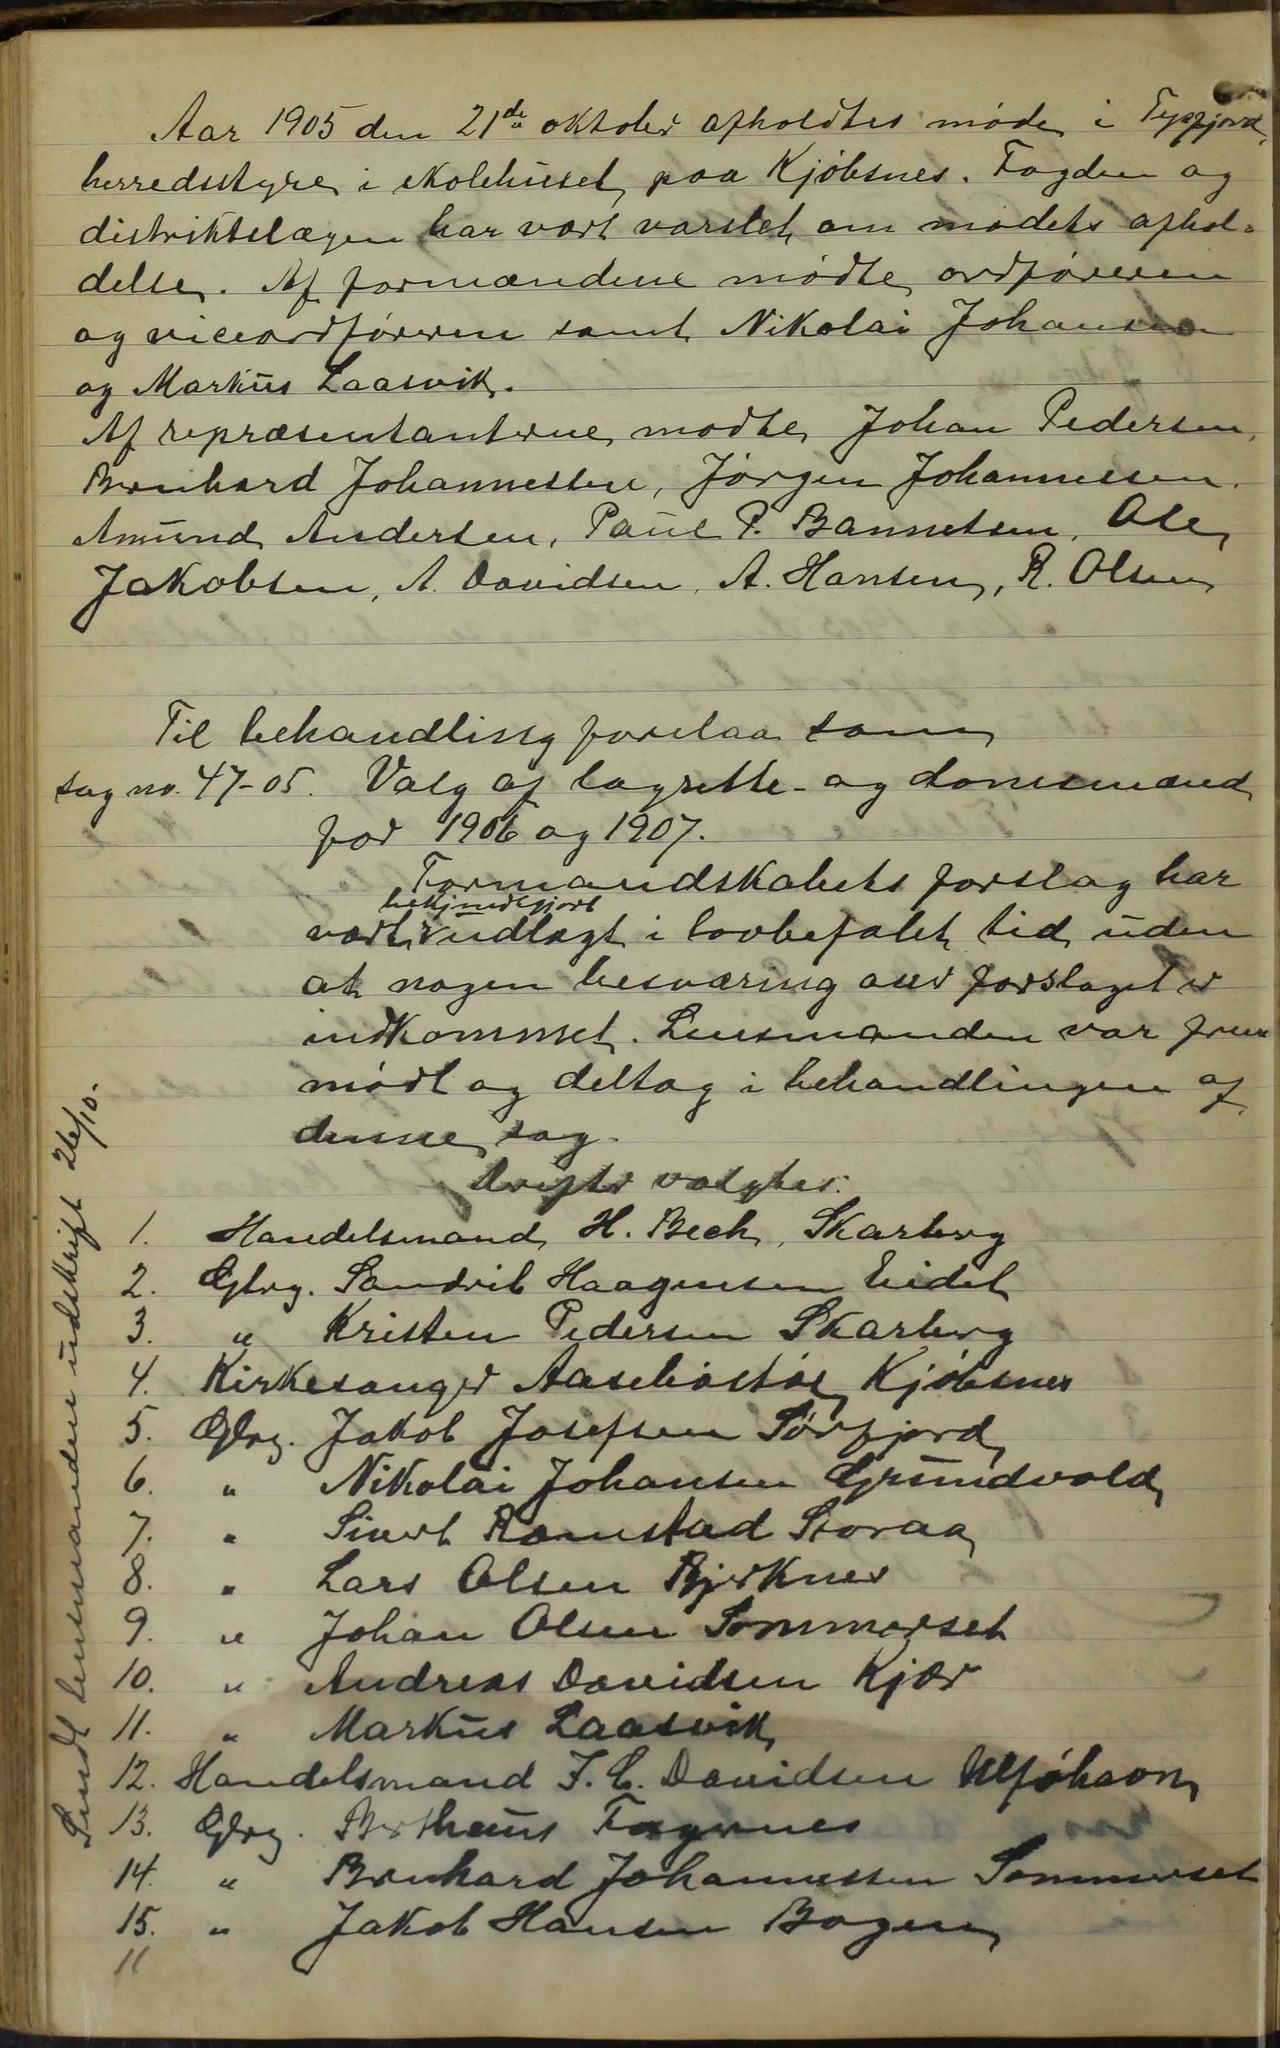 Aar 1905 den 21de oktober afholdtes møde i Tysfjord
herredsstyre i skolehuset paa Kjøbsnes. Fogden og
distriktslægen har vært varslet om mødets afhol-
delse. Af formændene mødte ordføreren
og viceordføreren samt Nikolai Johansen
og Markus Laasvik.
Af repræsentanterne mødte Johan Pedersen,
Bernhard Johannessen, Jørgen Johannessen,
Amund Andersen, Paul P. Bannetsen, Ole
Jakobsen, A. Davidsen, A. Hansen, R. Olsen
Til behandling forelaa som
sag no. 47-05. Valg af lagrette- og domsmænd
for 1906 og 1907.
Formandskabets forslag har
bekjendtgjort
vært udlagt i lovbefalet tid uden
at nogen besværing over forslaget er
indkommet. Lensmanden var frem
mødt og deltog i behandlingen af
denne sag.
Drefter valgtes:
1. Handelsmand H. Bech, Skarberg
2. Gbrg. Sandrik Haagensen Eidet
3. " Kristen Pedersen Skarberg
4. Kirkesanger Aasebøstøl Kjøbsnes
5. Gbrg. Jakob Josefsen Sørfjord
6. " Nikolai Johansen Grundvold
7. " Sivert Ramstad Storaa
8. " Lars Olsen Bjerknes
9. " Johan Olsen Sommerset
10. " Andreas Davidsen Kjær
11. " Markus Laasvik
12. Handelsmand J. C. Davidsen Ulføhavn
13. Gbrg. Bertheus Fagernes
14. " Bernhard Johannessen Sommerset
15. " Jakob Hansen Bogen
11
Sendt lensmanden udskrift 26/10.